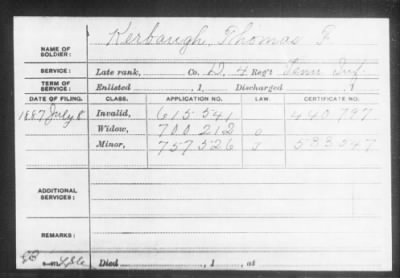 Kerbaugh, Thomas F.
NAME OF SOLDIER:
SERVICE: Late rank, Co. D, 4 Reg't Tenn Inf.
TERM OF SERVICE: Enlisted , 1 Discharged , 1
DATE OF FILING. CLASS. APPLICATION NO. LAW. CERTIFICATE NO.
1887 July 8 Invalid, 615.541 440.797
Widow, 700.212 o
Minor, 757.526 583.547
ADDITIONAL SERVICES:
REMARKS:
Died , 1 , at